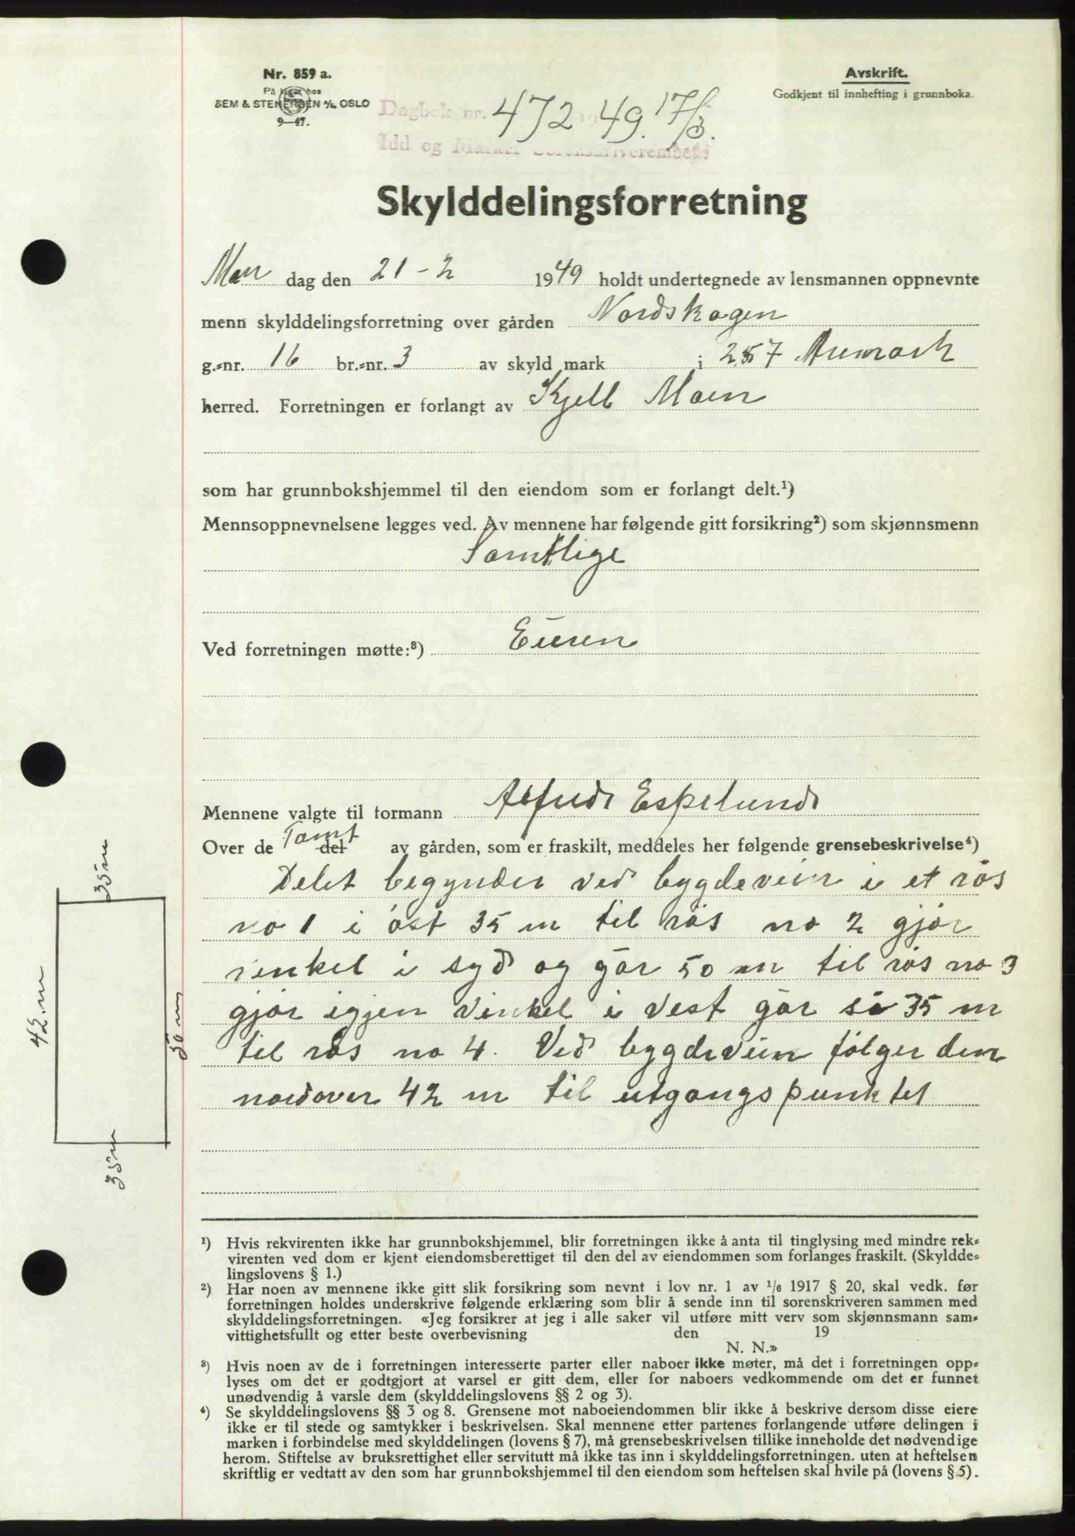 Nr. 859 a.
På lager hos
SEM & STENERSEN A/S, OSLO
9—47.
Avskrift.
Godkjent til innhefting i grunnboka.
Dagbok nr. 472 49. 17/3.
Idd og Marker Sorenskriverembede
Skylddelingsforretning
Man dag den 21-2 1949 holdt undertegnede av lensmannen oppnevnte
menn skylddelingsforretning over gården Nordskogen
g.-nr. 16 br.-nr. 3 av skyld mark i 2,57 Aremark
herred. Forretningen er forlangt av Kjell Moen
som har grunnbokshjemmel til den eiendom som er forlangt delt.¹)
Mennsoppnevnelsene legges ved. Av mennene har følgende gitt forsikring²) som skjønnsmenn
Samtlige
Ved forretningen møtte:³) Eieren
Mennene valgte til formann Alfred Espelund
Over de Tomt det av gården, som er fraskilt, meddeles her følgende grensebeskrivelse⁴)
Delet begynder ved bygdeveien i et røs
no 1 i øst 35 m til røs no 2 gjør
vinkel i syd og går 50 m til røs no 3
gjør igjen vinkel i vest går så 35 m
til røs no 4. Ved bygdeveien følger den
nordover 42 m til utgangspunktet
35 m
42 m
50 m
35 m
¹) Hvis rekvirenten ikke har grunnbokshjemmel, blir forretningen ikke å anta til tinglysing med mindre rek-
virenten ved dom er kjent eiendomsberettiget til den del av eiendommen som forlanges fraskilt. (Skyldde-
lingslovens § 1.)
²) Har noen av mennene ikke gitt slik forsikring som nevnt i lov nr. 1 av 1/6 1917 § 20, skal vedk. før
forretningen holdes underskrive følgende erklæring som blir å sende inn til sorenskriveren sammen med
skylddelingsforretningen. «Jeg forsikrer at jeg i alle saker vil utføre mitt verv som skjønnsmann sam-
vittighetsfullt og etter beste overbevisning den 19
N. N.»
³) Hvis noen av de i forretningen interesserte parter eller naboer ikke møter, må det i forretningen opp-
lyses om det er godtgjort at varsel er gitt dem, eller for naboers vedkommende om det er funnet
unødvendig å varsle dem (skylddelingslovens §§ 2 og 3).
⁴) Se skylddelingslovens §§ 3 og 8. Grensene mot naboeiendommen blir ikke å beskrive dersom disse eiere
ikke er til stede og samtykker i beskrivelsen. Skal mennene etter partenes forlangende utføre delingen i
marken i forbindelse med skylddelingen (lovens § 7), må grensebeskrivelsen tillike inneholde det nødvendige
herom. Stiftelse av bruksrettighet eller servitutt må ikke tas inn i skylddelingsforretningen. uten at heftelsen
skriftlig er vedtatt av den som har grunnbokshjemmel til den eiendom som heftelsen skal hvile på (lovens § 5).